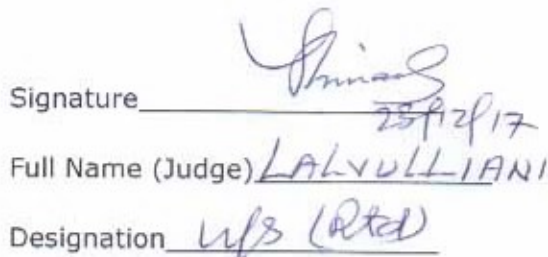 Signature
25/12/17
Full Name (Judge) LALVULLIANI
Designation U/S (Rtd)